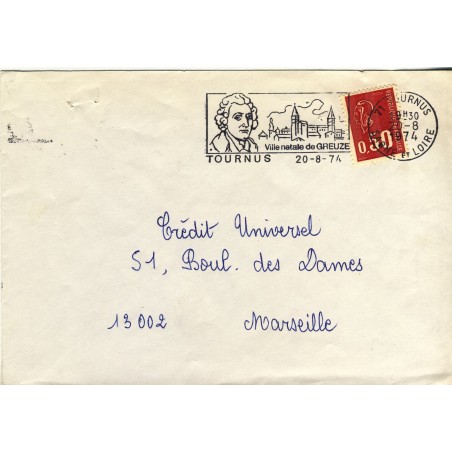 Ville natale de GREUZE
TOURNUS 20-8-74
TOURNUS
1974
ET LOIRE
0,80
Crédit Universel
51, Boul. des Dames
13002 Marseille